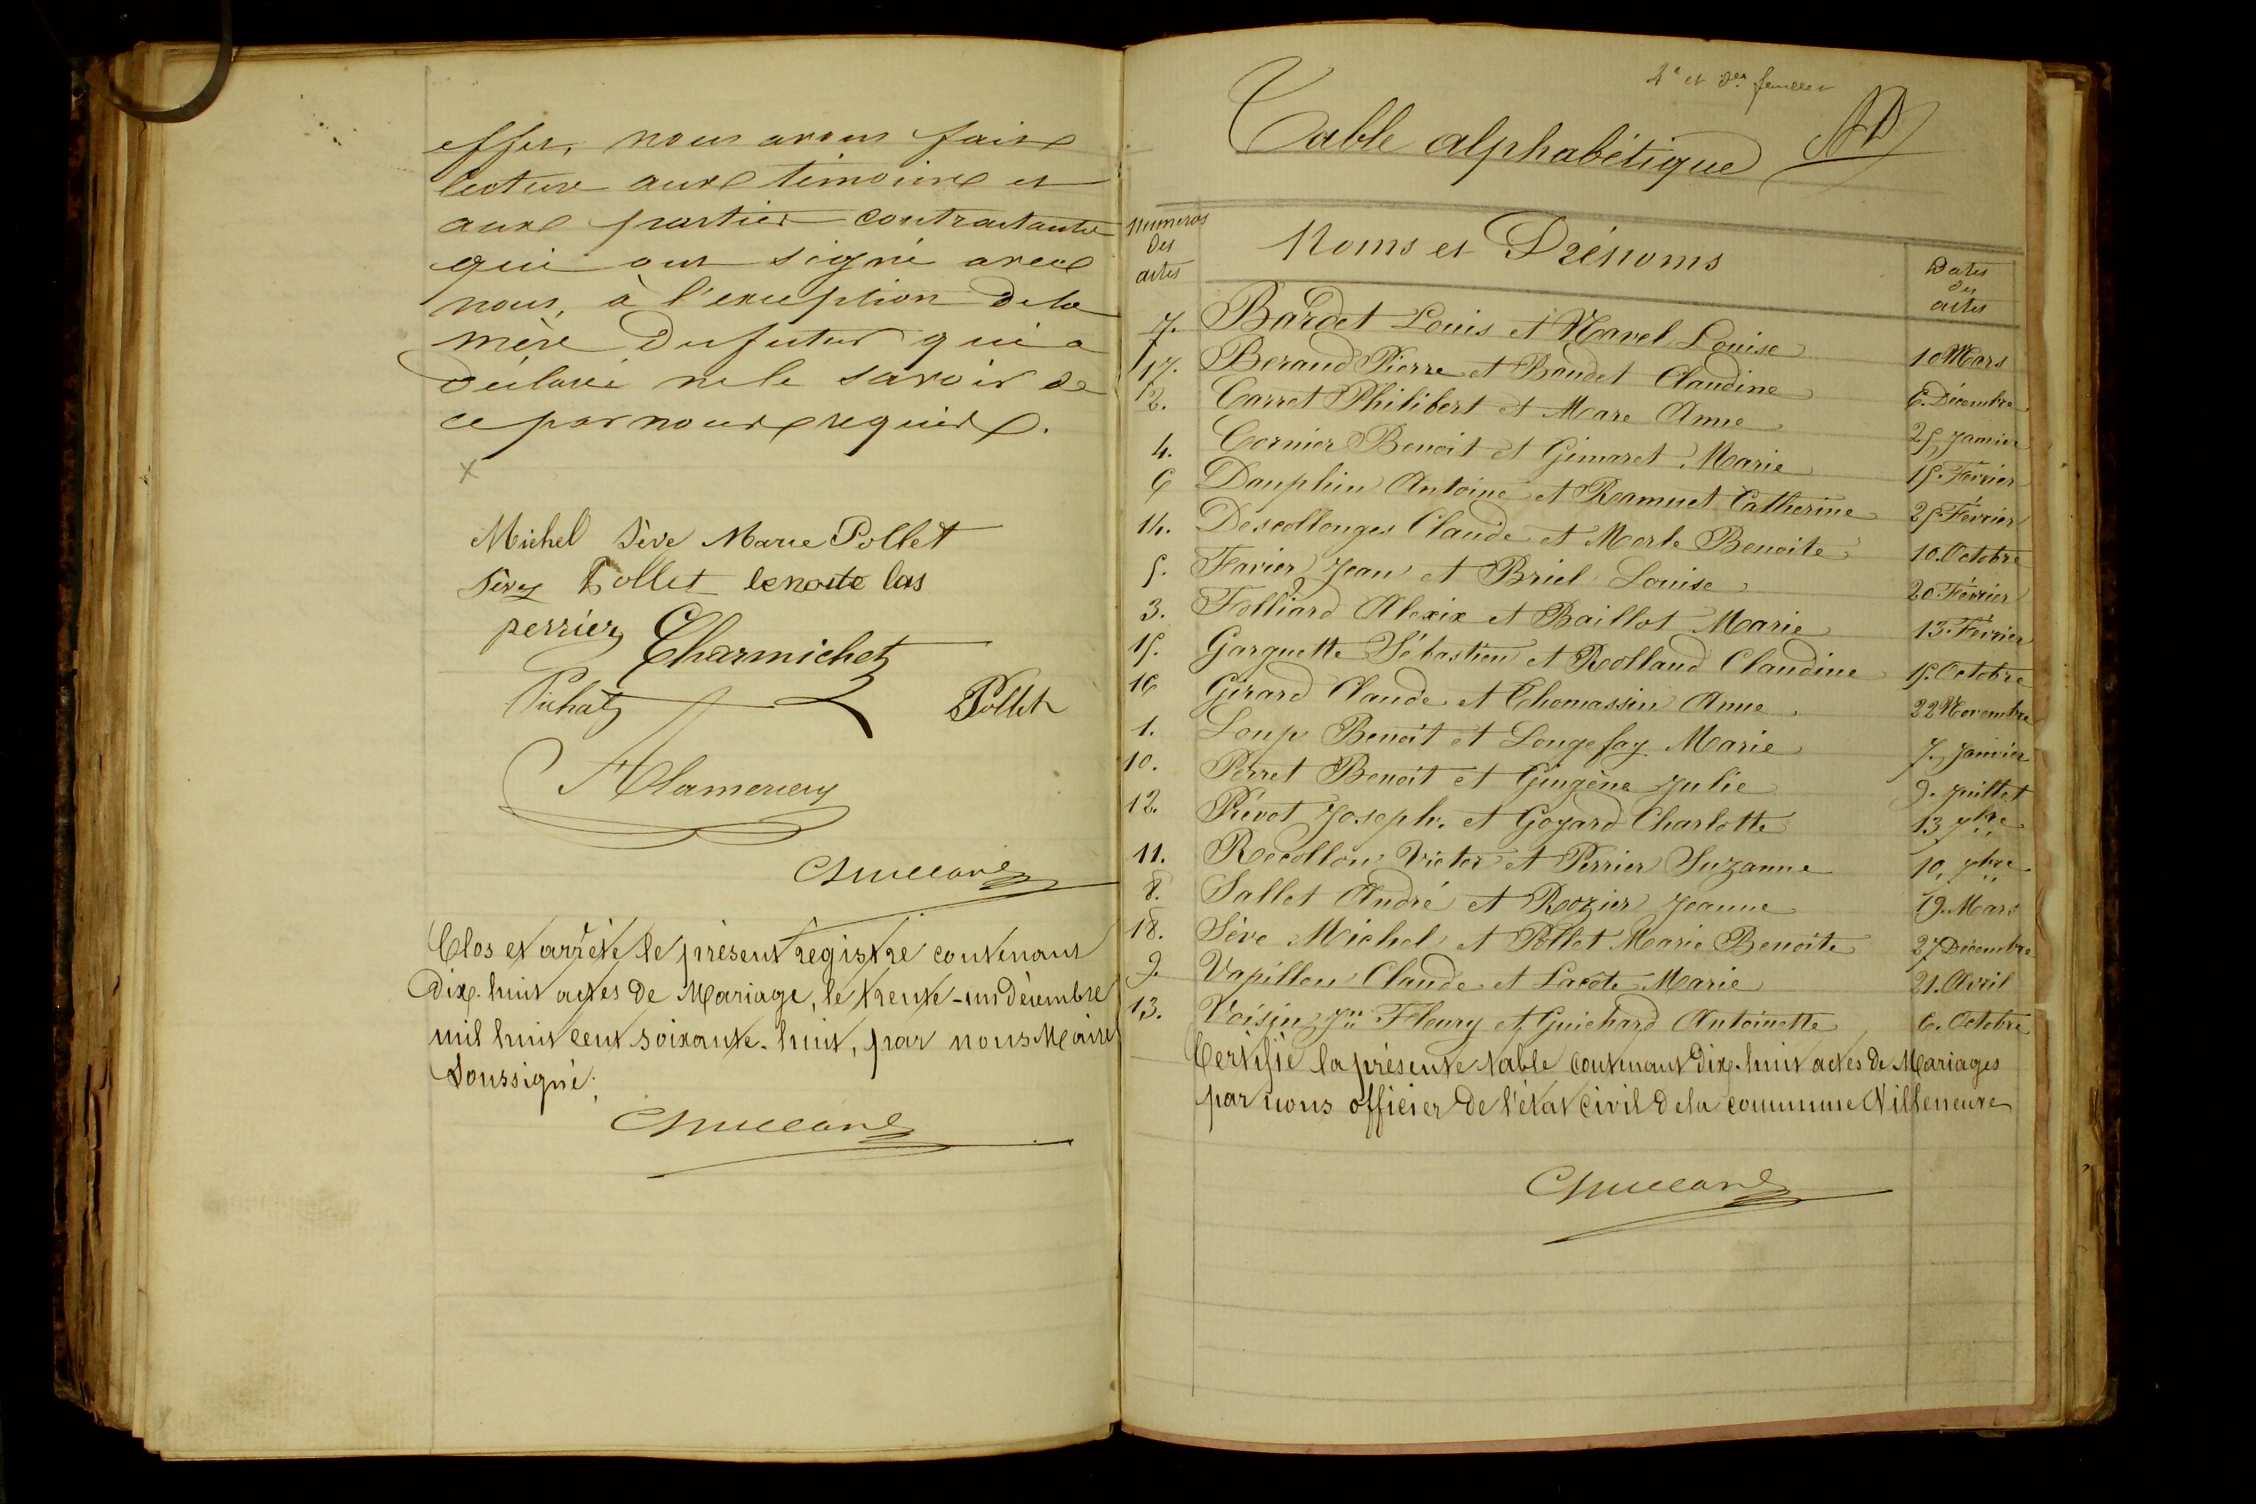 effet, nous avons fait
lecture aux témoins et
aux parties contractantes
qui ont signé avec
nous, à l'exception de la
mère du futur qui a
déclaré ne le savoir de
ce par nous requise.
Michel Sève Marie Pollet
Sève Pollet benoite las
perrier Charmichet
Pichat Pollet
Clos et arrêté le présent registre contenant
dix-huit actes de Mariage, le trente-un décembre
mil huit cent soixante-huit, par nous Maire
soussigné.
4e et der feuillet
Table alphabétique
Numéros des actes
Noms et Prénoms
Dates des actes
7. Bardet Louis et Navel Louise 10 Mars
17. Beraud Pierre et Baudet Claudine 6. Décembre
2. Carret Philibert et Mare Anne 25 Janvier
4. Cornier Benoit et Gimaret Marie 15. Février
6 Dauphin Antoine et Ramuet Catherine 25 Février
14. Descollonges Claude et Merle Benoite 10. Octobre
5. Favier Jean et Briel Louise 20 Février
3. Folliard Alexix et Baillot Marie 13. Février
15. Garguette Sébastien et Rolland Claudine 15. Octobre
16 Girard Claude et Thomassin Anne 22 Novembre
1. Loup Benoit et Longefay Marie 7. Janvier
10. Perret Benoit et Gingène Julie 9. Juillet
12. Prévot Joseph. et Goyard Charlotte 13 7bre
11. Recollon Victor et Perrier Suzanne 10, 7bre
8. Sallet André et Rozier Jeanne 19. Mars
18. Sève Michel et Pollet Marie Benoite 27 Décembre
9. Vapillon Claude et Lacote Marie 21. Avril
13. Voisin Jn Fleury et Guichard Antoinette 6. Octobre
Certifié la présente table contenant dix-huit actes de Mariages
par nous officier de l'état civil de la commune Villeneuve